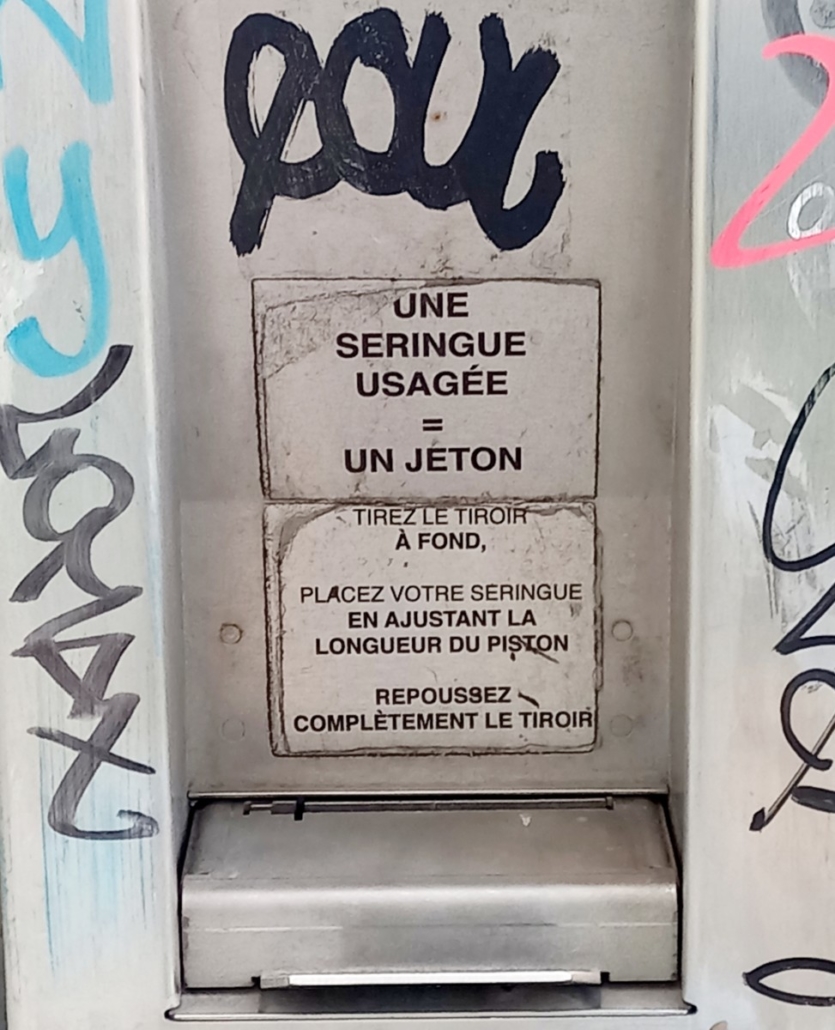 UNE
SERINGUE
USAGÉE
=
UN JETON
TIREZ LE TIROIR
À FOND,
PLACEZ VOTRE SERINGUE
EN AJUSTANT LA
LONGUEUR DU PISTON
REPOUSSEZ
COMPLÈTEMENT LE TIROIR